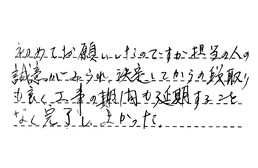 初めてお願いしたのですが担当の人の
誠意がみられ、決定してからの段取り
も良く、工事の期間も延期すること
なく完了しよかった。